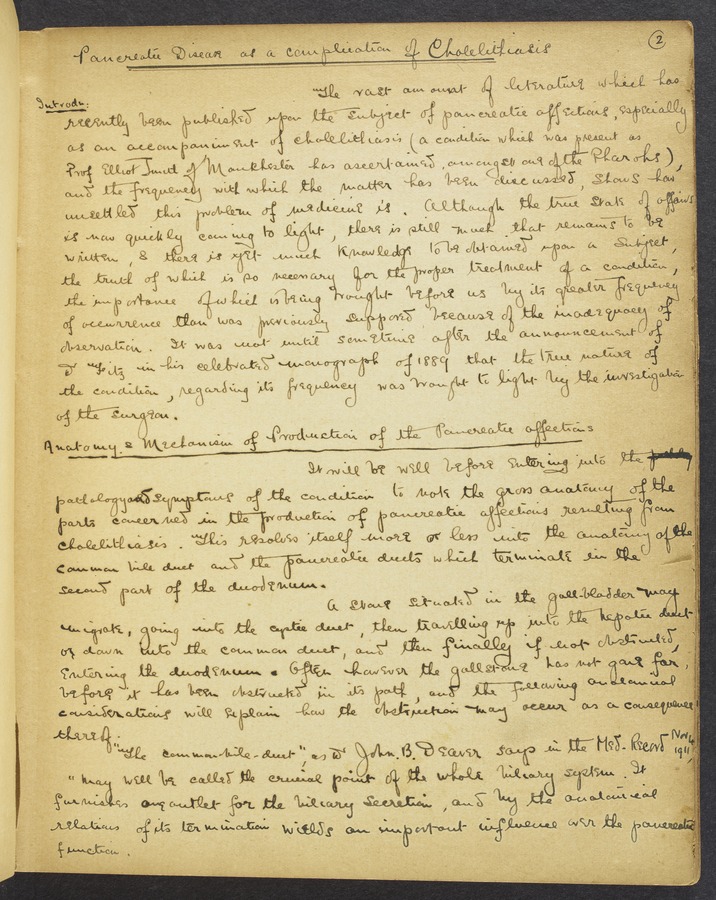 2
Pancreatic Disease as a complication of Cholelithiasis
Introdn: The vast amount of literature which has
recently been published upon the subject of pancreatic affections, especially
as an accompaniment of cholelithiasis (a condition which was present as
Prof Elliot Smith of Manchester has ascertained, amongst one of the Pharohs),
and the frequency with which the matter has been discussed, shows how
unsettled this problem of medicine is. Although the true state of affairs
is now quickly coming to light, there is still much that remains to be
written, & there is yet much knowledge to be obtained upon a subject,
the truth of which is so necessary for the proper treatment of a condition,
the importance of which is being brought before us by its greater frequency
of occurrence than was previously supposed because of the inadequacy of
observation. It was not until sometime after the announcement of
Fitz in his celebrated monograph of 1889 that the true nature of
the condition, regarding its frequency was brought to light by the investigation
of the surgeon.
Anatomy & Mechanism of Production of the Pancreatic affections
It will be well before entering into the
pathology and symptoms of the condition to note the gross anatomy of the
parts concerned in the production of pancreatic affections resulting from
cholelithiasis. This resolves itself more or less into the anatomy of the
common bile duct and the pancreatic ducts which terminate in the
second part of the duodenum.
A stone situated in the gall-bladder may
migrate, going into the cystic duct, then travelling up into the hepatic duct
or down into the common duct, and then finally if not obstructed,
entering the duodenum. Often however the gallstone has not gone far,
before it has been obstructed in its path, and the following anatomical
considerations will explain how the obstruction may occur as a consequence
thereof.
"The common-bile-duct", as John. B. Deaver says in the Med-Record Nov 4, 1911,
"may well be called the crucial point of the whole biliary system. It
furnishes one outlet for the biliary secretion, and by the anatomical
relations of its termination wields an important influence over the pancreatic
function.